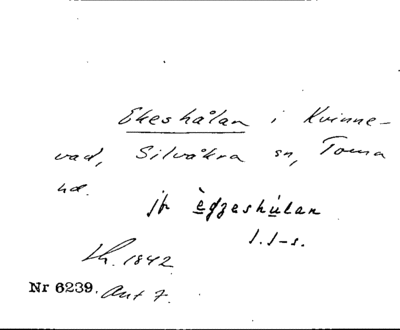 Ekeshålan i Kvinne-
vad, Silvåkra sn, Torna
hd.
jfr ègzeshúlan
J. J-s.
Lh. 1842
Nr 6239. Ant 7.